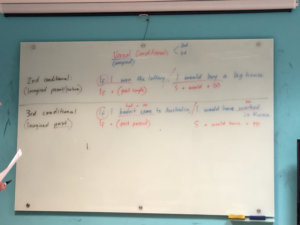 Unreal Conditionals < 2nd
3rd
2nd conditional: If I won the lottery, I would buy a big house
(imagined present/future) If + (past simple) S + would + 
3rd conditional: If I hadn't come to Australia, I would have worked
in
(imagined past) If + (past perfect) S + would have + pp